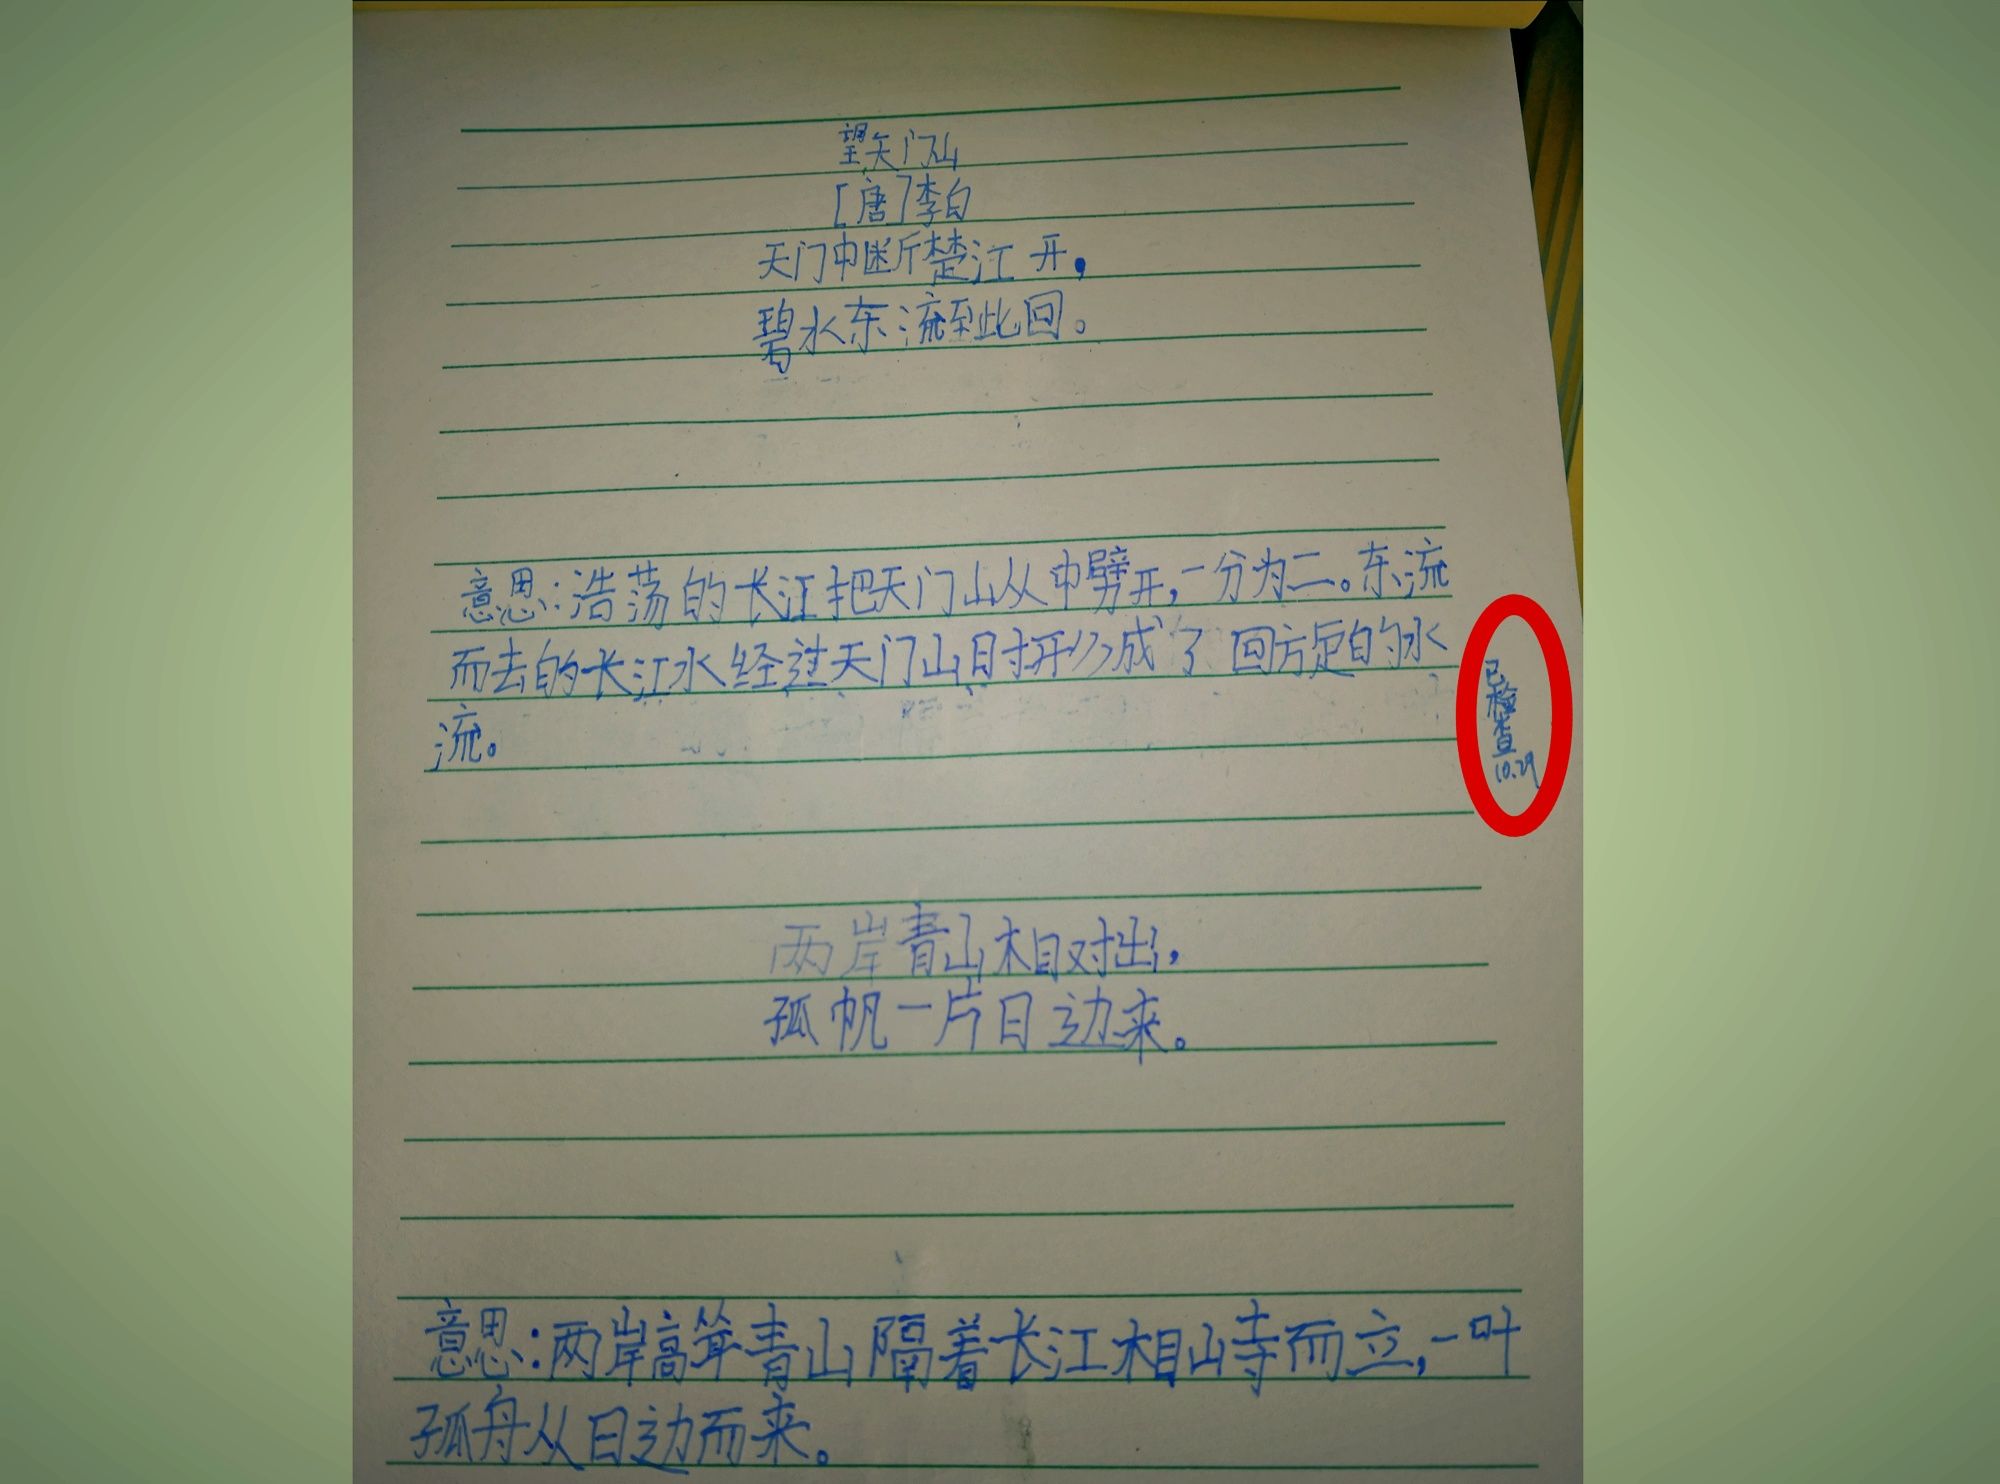 望天门山
[唐]李白
天门中断楚江开,
碧水东流至此回。
意思:浩荡的长江把天门山从中劈开,一分为二。东流
而去的长江水经过天门山时形成了回旋的水
流。
已检查
10.29
两岸青山相对出,
孤帆一片日边来。
意思:两岸高耸青山隔着长江相峙而立,一叶
孤舟从日边而来。